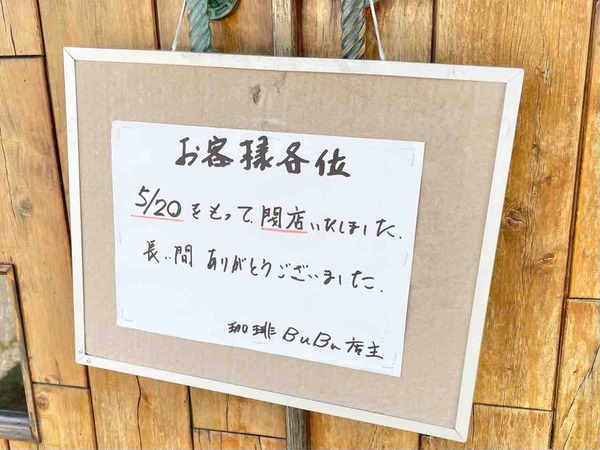 お客様各位
5/20をもって、閉店いたしました。
長い間 ありがとうございました。
珈琲 BuBu 店主